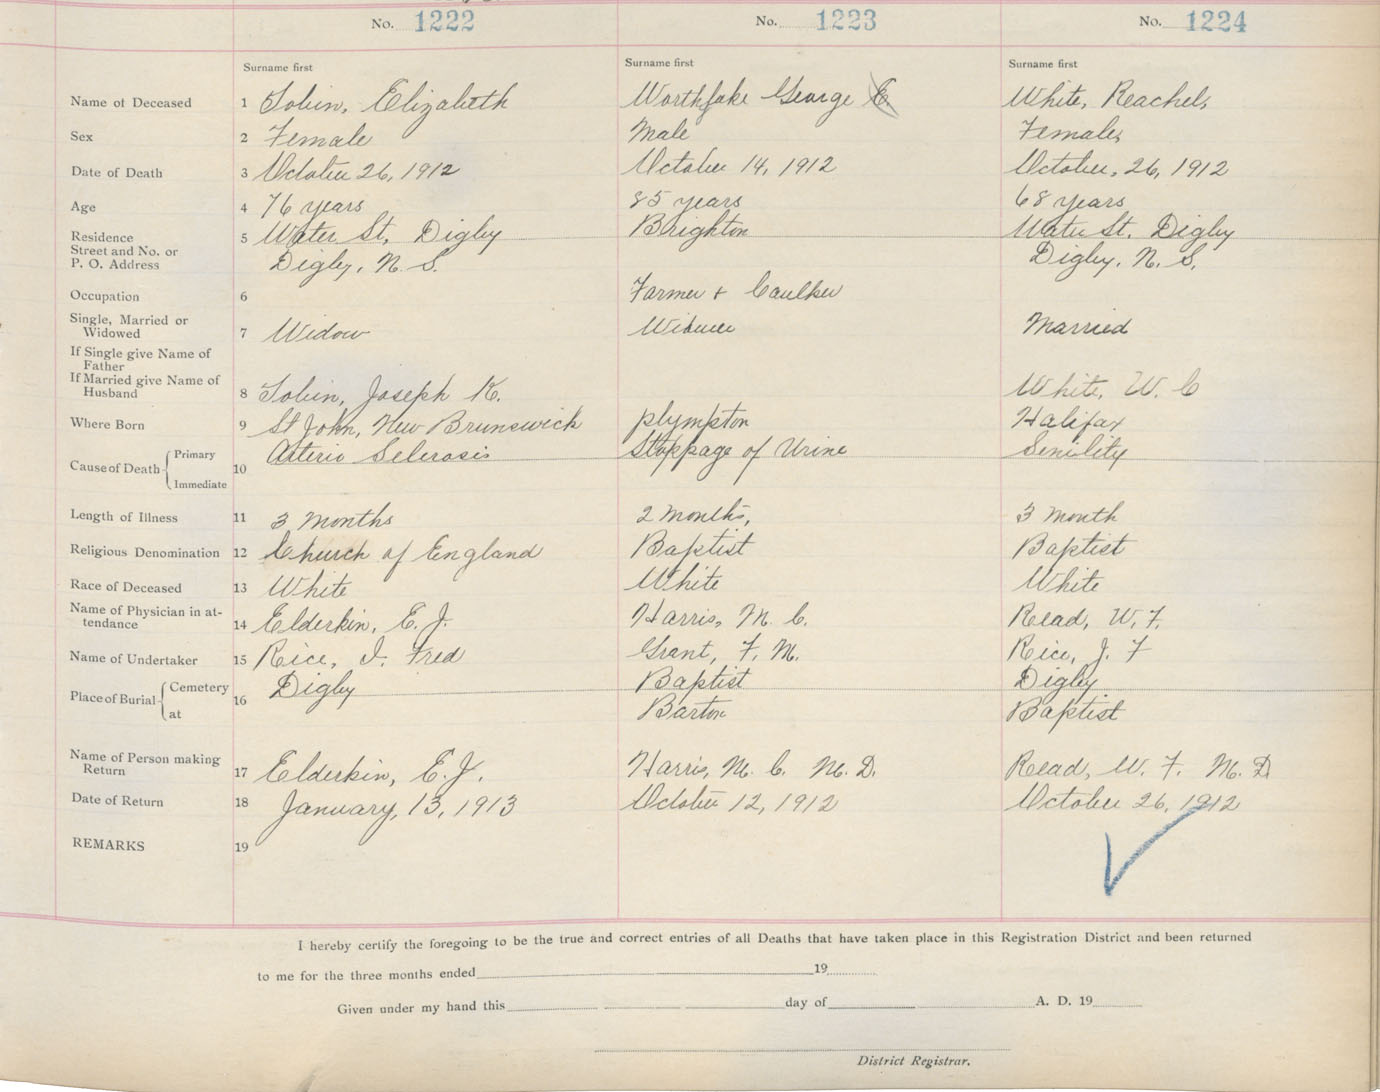 No. 1222 No. 1223 No. 1224
Surname first Surname first Surname first
Name of Deceased 1 Tobin, Elizabeth Worthfake George E. White, Reachel,
Sex 2 Female Male Female,
Date of Death 3 October 26, 1912 October 14, 1912 October, 26, 1912
Age 4 76 years 85 years 68 years
Residence 5 Water St, Digby Brighton Water St. Digby
Street and No. or
P. O. Address Digby, N. S. Digby, N. S,
Occupation 6 Farmer + Caulker
Single, Married or
Widowed 7 Widow Widower Married
If Single give Name of
Father
If Married give Name of
Husband 8 Tobin, Joseph K. White, W. C
Where Born 9 St John, New Brunswick Plympton Halifax
Cause of Death Primary 10 Arterio Selerosis Stoppage of Urine Senility
Immediate
Length of Illness 11 3 Months 2 months, 3 month
Religious Denomination 12 Church of England Baptist Baptist
Race of Deceased 13 White White White
Name of Physician in at-
tendance 14 Elderkin, E. J. Harris, M. C. Read, W. F.
Name of Undertaker 15 Rice, J. Fred Grant, F. M. Rice, J. F
Place of Burial Cemetery 16 Digby Baptist Digby
at Barton Baptist
Name of Person making
Return 17 Elderkin, E. J. Harris, M. C. M. D. Read, W. F. M. D
Date of Return 18 January, 13, 1913 October 12, 1912 October 26, 1912
REMARKS 19
I hereby certify the foregoing to be the true and correct entries of all Deaths that have taken place in this Registration District and been returned
to me for the three months ended 19
Given under my hand this day of A. D. 19
District Registrar.